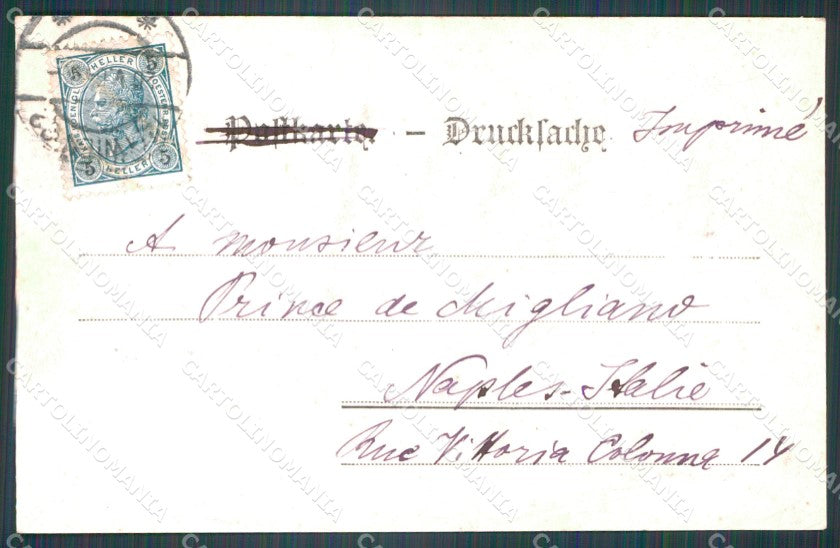 5 HELLER 5
5 HELLER 5
Postkarte – Drucksache Imprimé
A monsieur
Prince de Migliano
Naples-Italie
Rue Vittoria Colonna 14
CARTOLINOMANIA